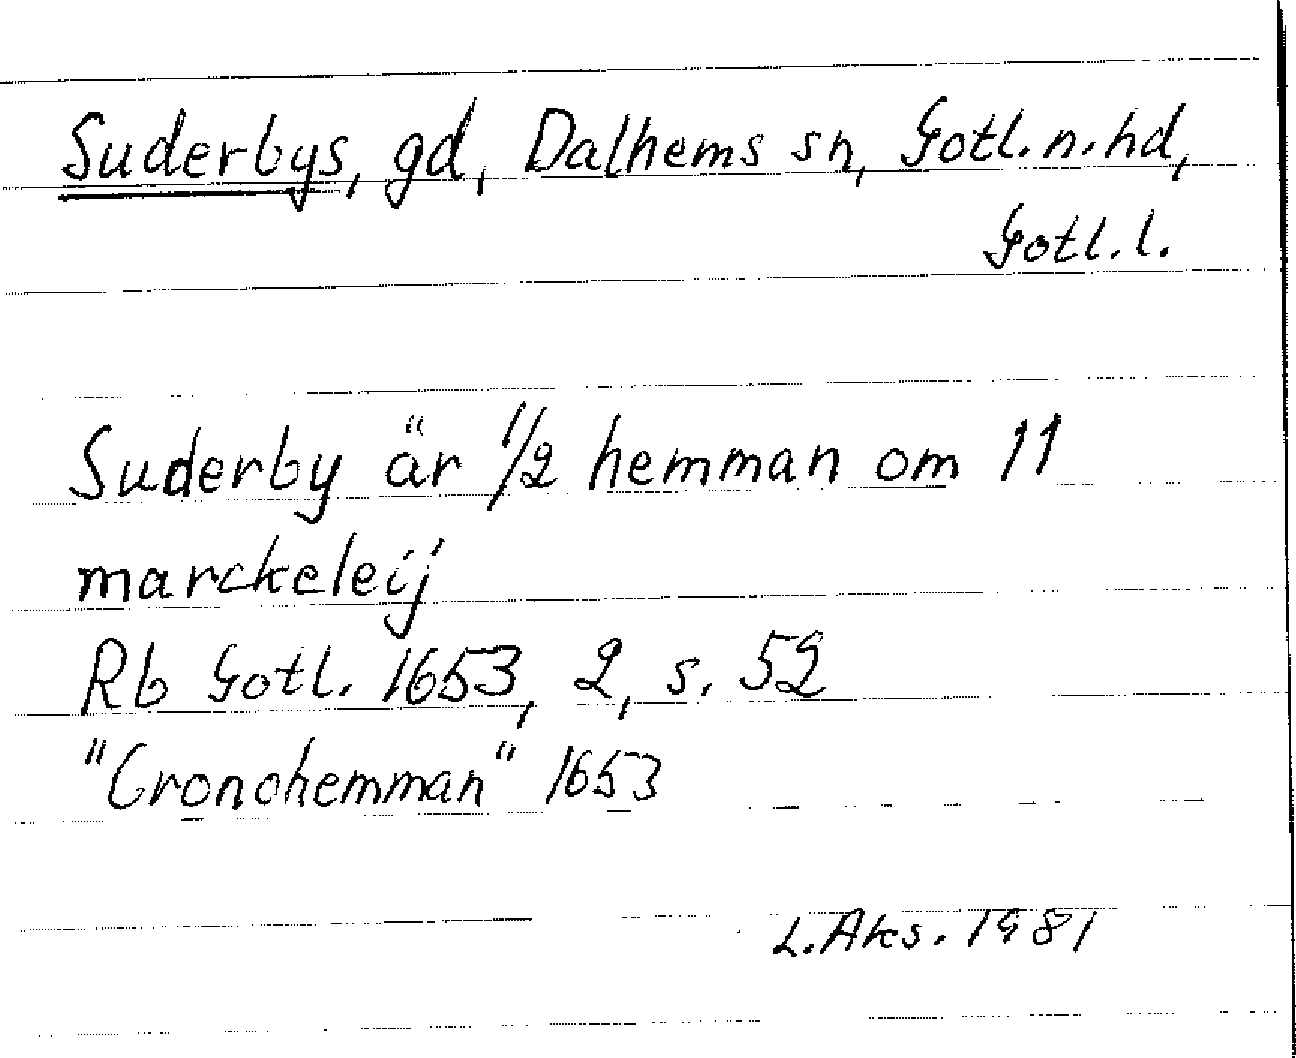 Suderbys, gd, Dalhems sn, Gotl. n. hd,
Gotl. l.
Suderby är 1/2 hemman om 11
marckeleij
Rb Gotl. 1653, 2, s. 52
"Cronohemman" 1653
L. Aks. 1981